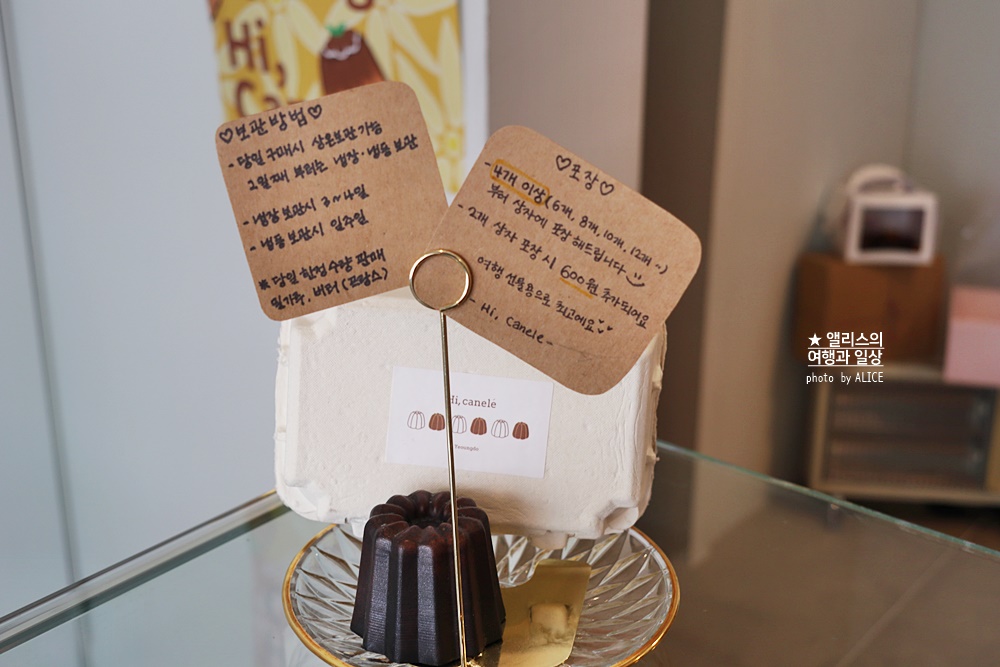 Hi,
Ca
♡보관방법♡
- 당일 구매시 상온보관 가능
2일째 부터는 냉장·냉동 보관
- 냉장 보관시 3~4일
- 냉동 보관시 일주일
※ 당일 한정 수량 판매
밀가루, 버터 (프랑스)
♡포장♡
- 4개 이상 (6개, 8개, 10개, 12개 ~)
부터 상자에 포장 해드립니다
- 2개 상자 포장 시 600원 추가되어요
여행 선물용으로 최고에요
- Hi, Canele -
Hi, canelé
★ 앨리스의
여행과 일상
photo by ALICE